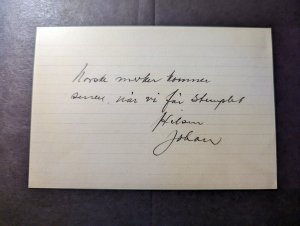 Norske merker kommer
senere, når vi får stemplet
Hilsen
Johan